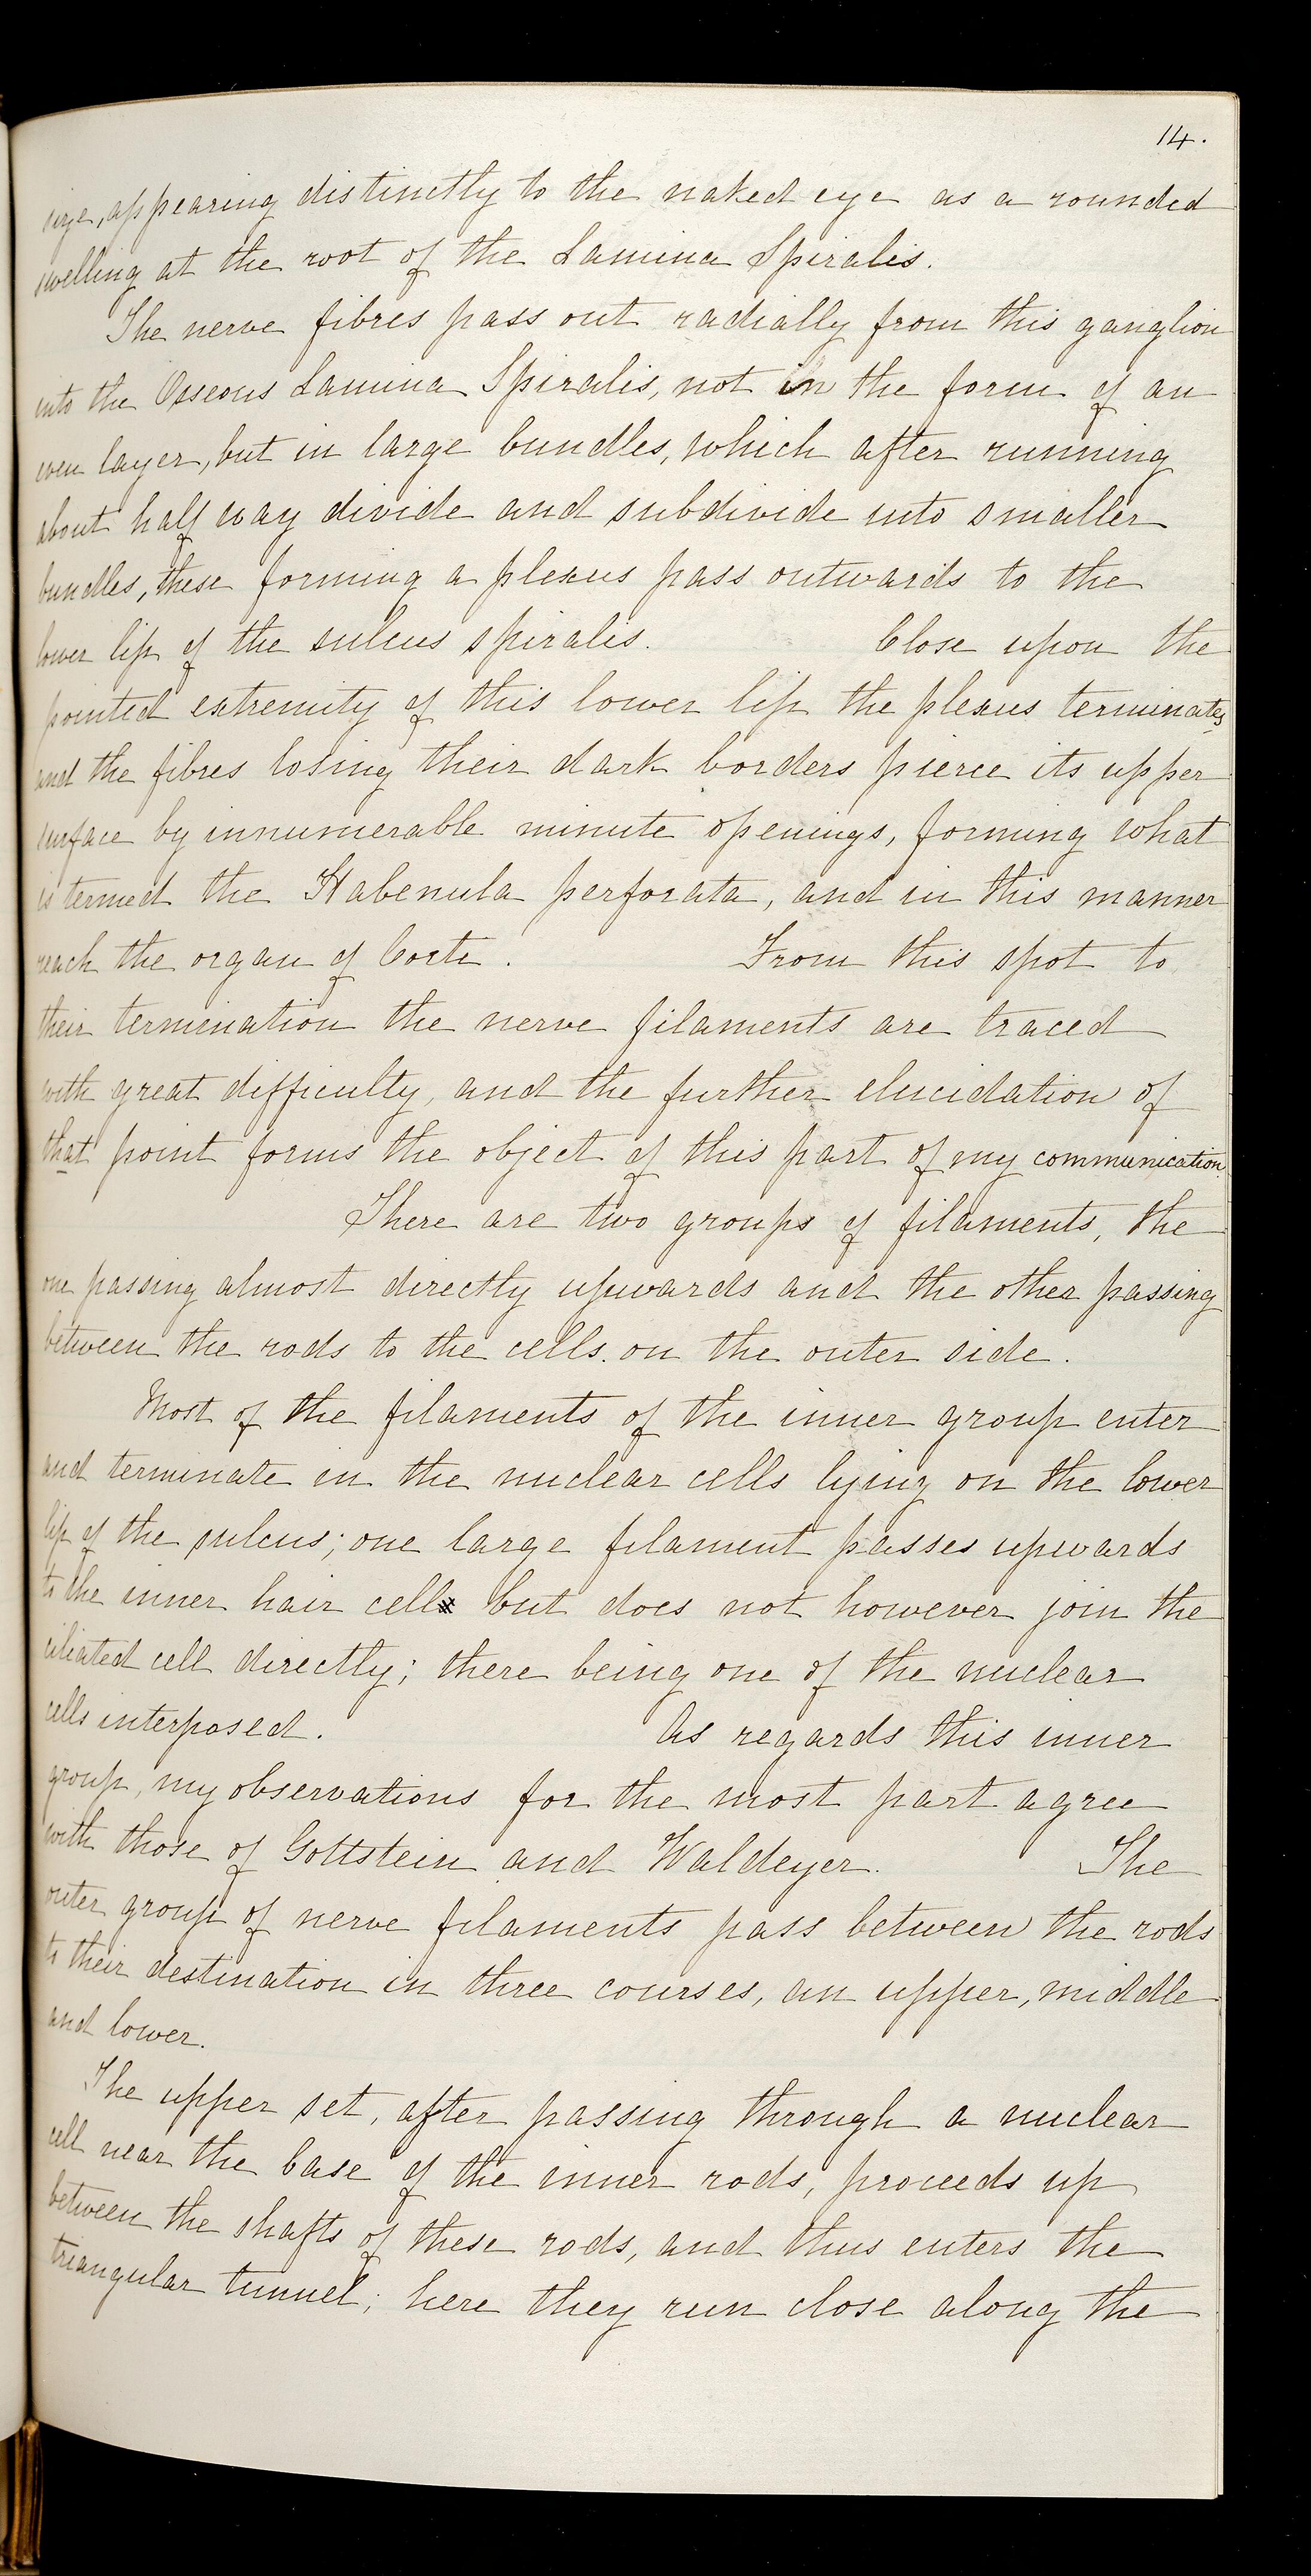 14.
size, appearing distinctly to the naked eye as a rounded
swelling at the root of the Lamina Spiralis.
The nerve fibres pass out radially from this ganglion
into the Osseous Lamina Spiralis, not in the form of an
even layer, but in large bundles, which after running
about half way divide and subdivide into smaller
bundles, these forming a plexus pass outwards to the
lower lip of the sulcus spiralis. Close upon the
pointed extremity of this lower lip the plexus terminates
and the fibres losing their dark borders pierce its upper
surface by innumerable minute openings, forming what
is termed the Habenula perforata, and in this manner
reach the organ of Corti. From this spot to
their termination the nerve filaments are traced
with great difficulty, and the further elucidation of
that point forms the object of this part of my communication.
There are two groups of filaments, the
one passing almost directly upwards and the other passing
between the rods to the cells on the outer side.
Most of the filaments of the inner group enter
and terminate in the nuclear cells lying on the lower
lip of the sulcus; one large filament passes upwards
to the inner hair cell but does not however join the
ciliated cell directly; there being one of the nuclear
cells interposed. As regards this inner
group, my observations for the most part agree
with those of Gottstein and Waldeyer. The
outer group of nerve filaments pass between the rods
to their destination in three courses, an upper, middle
and lower.
The upper set, after passing through a nuclear
cell near the base of the inner rods, proceeds up
between the shafts of these rods, and thus enters the
triangular tunnel; here they run close along the